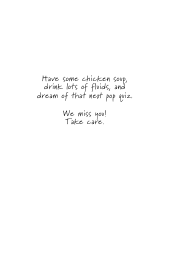 Have some chicken soup,
drink lots of fluids, and
dream of that next pop quiz.
We miss you!
Take care.